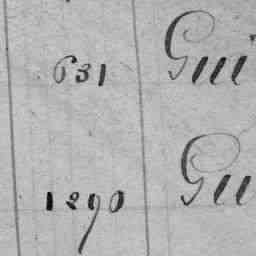 631 Gui
1290 Gu